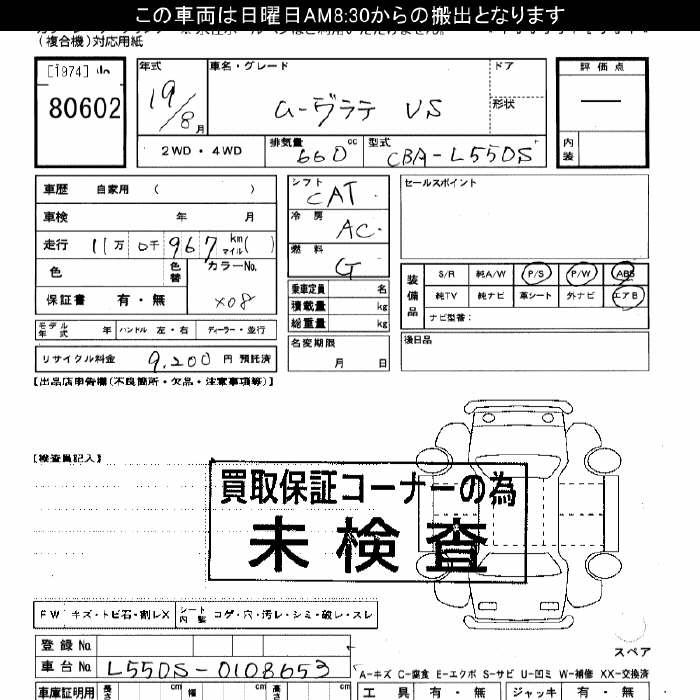 この車両は日曜日AM8:30からの搬出となります
(複合機)対応用紙
[1974]
80602
年式
19/8月
車名・グレード
ムーヴラテ VS
ドア
形状
評価点
内装
2WD・4WD
排気量 660 cc
型式 CBA-L550S
車歴 自家用 ( )
車検 年 月
走行 11万 0千 967 km マイル( )
色
色替
カラーNo.
X08
保証書 有・無
シフト CAT
冷房 AC
燃料 G
乗車定員 名
積載量 kg
総重量 kg
セールスポイント
装備品
S/R 純A/W P/S P/W ABS
純TV 純ナビ 革シート 外ナビ エアB
ナビ型番:
モデル年式 年 ハンドル 左・右 ディーラー・並行
リサイクル料金 9,200 円 預託済
名変期限
月 日
後日品
【出品店申告欄(不良箇所・欠品・注意事項等)】
【検査員記入】
買取保証コーナーの為
未検査
FW キズ・トビ石・割レX
シート内装 コゲ・穴・汚レ・シミ・破レ・スレ
スペア
登録No.
車台No. L550S-0108653
A-キズ C-腐食 E-エクボ S-サビ U-凹ミ W-補修 XX-交換済
車庫証明用 長さ cm 幅 cm 高さ cm
工具 有・無 ジャッキ 有・無